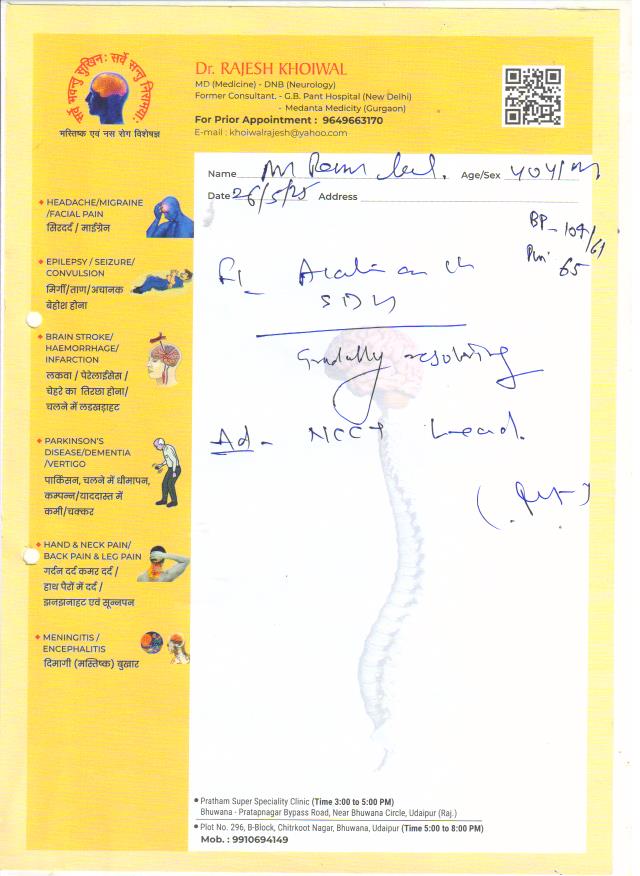 सर्वे भवन्तु सुखिनः सर्वे सन्तु निरामयाः
मस्तिष्क एवं नस रोग विशेषज्ञ
Dr. RAJESH KHOIWAL
MD (Medicine) - DNB (Neurology)
Former Consultant. - G.B. Pant Hospital (New Delhi)
- Medanta Medicity (Gurgaon)
For Prior Appointment : 9649663170
E-mail : khoiwalrajesh@yahoo.com
Name Age/Sex 40Y/M
Date 26/5/25 Address
BP- 104/61
65
SDH
Gradually resolving
Ad - NCCT head.
HEADACHE/MIGRAINE
/FACIAL PAIN
सिरदर्द / माईग्रेन
EPILEPSY / SEIZURE/
CONVULSION
मिर्गी/ताण/अचानक
बेहोश होना
BRAIN STROKE/
HAEMORRHAGE/
INFARCTION
लकवा / पेरेलाईसेस /
चेहरे का तिरछा होना/
चलने में लडखड़ाहट
PARKINSON'S
DISEASE/DEMENTIA
/VERTIGO
पार्किंसन, चलने में धीमापन,
कम्पन्न/याददास्त में
कमी/चक्कर
HAND & NECK PAIN/
BACK PAIN & LEG PAIN
गर्दन दर्द कमर दर्द /
हाथ पैरों में दर्द /
झनझनाहट एवं सून्नपन
MENINGITIS /
ENCEPHALITIS
दिमागी (मस्तिष्क) बुखार
Pratham Super Speciality Clinic (Time 3:00 to 5:00 PM)
Bhuwana - Pratapnagar Bypass Road, Near Bhuwana Circle, Udaipur (Raj.)
Plot No. 296, B-Block, Chitrkoot Nagar, Bhuwana, Udaipur (Time 5:00 to 8:00 PM)
Mob. : 9910694149